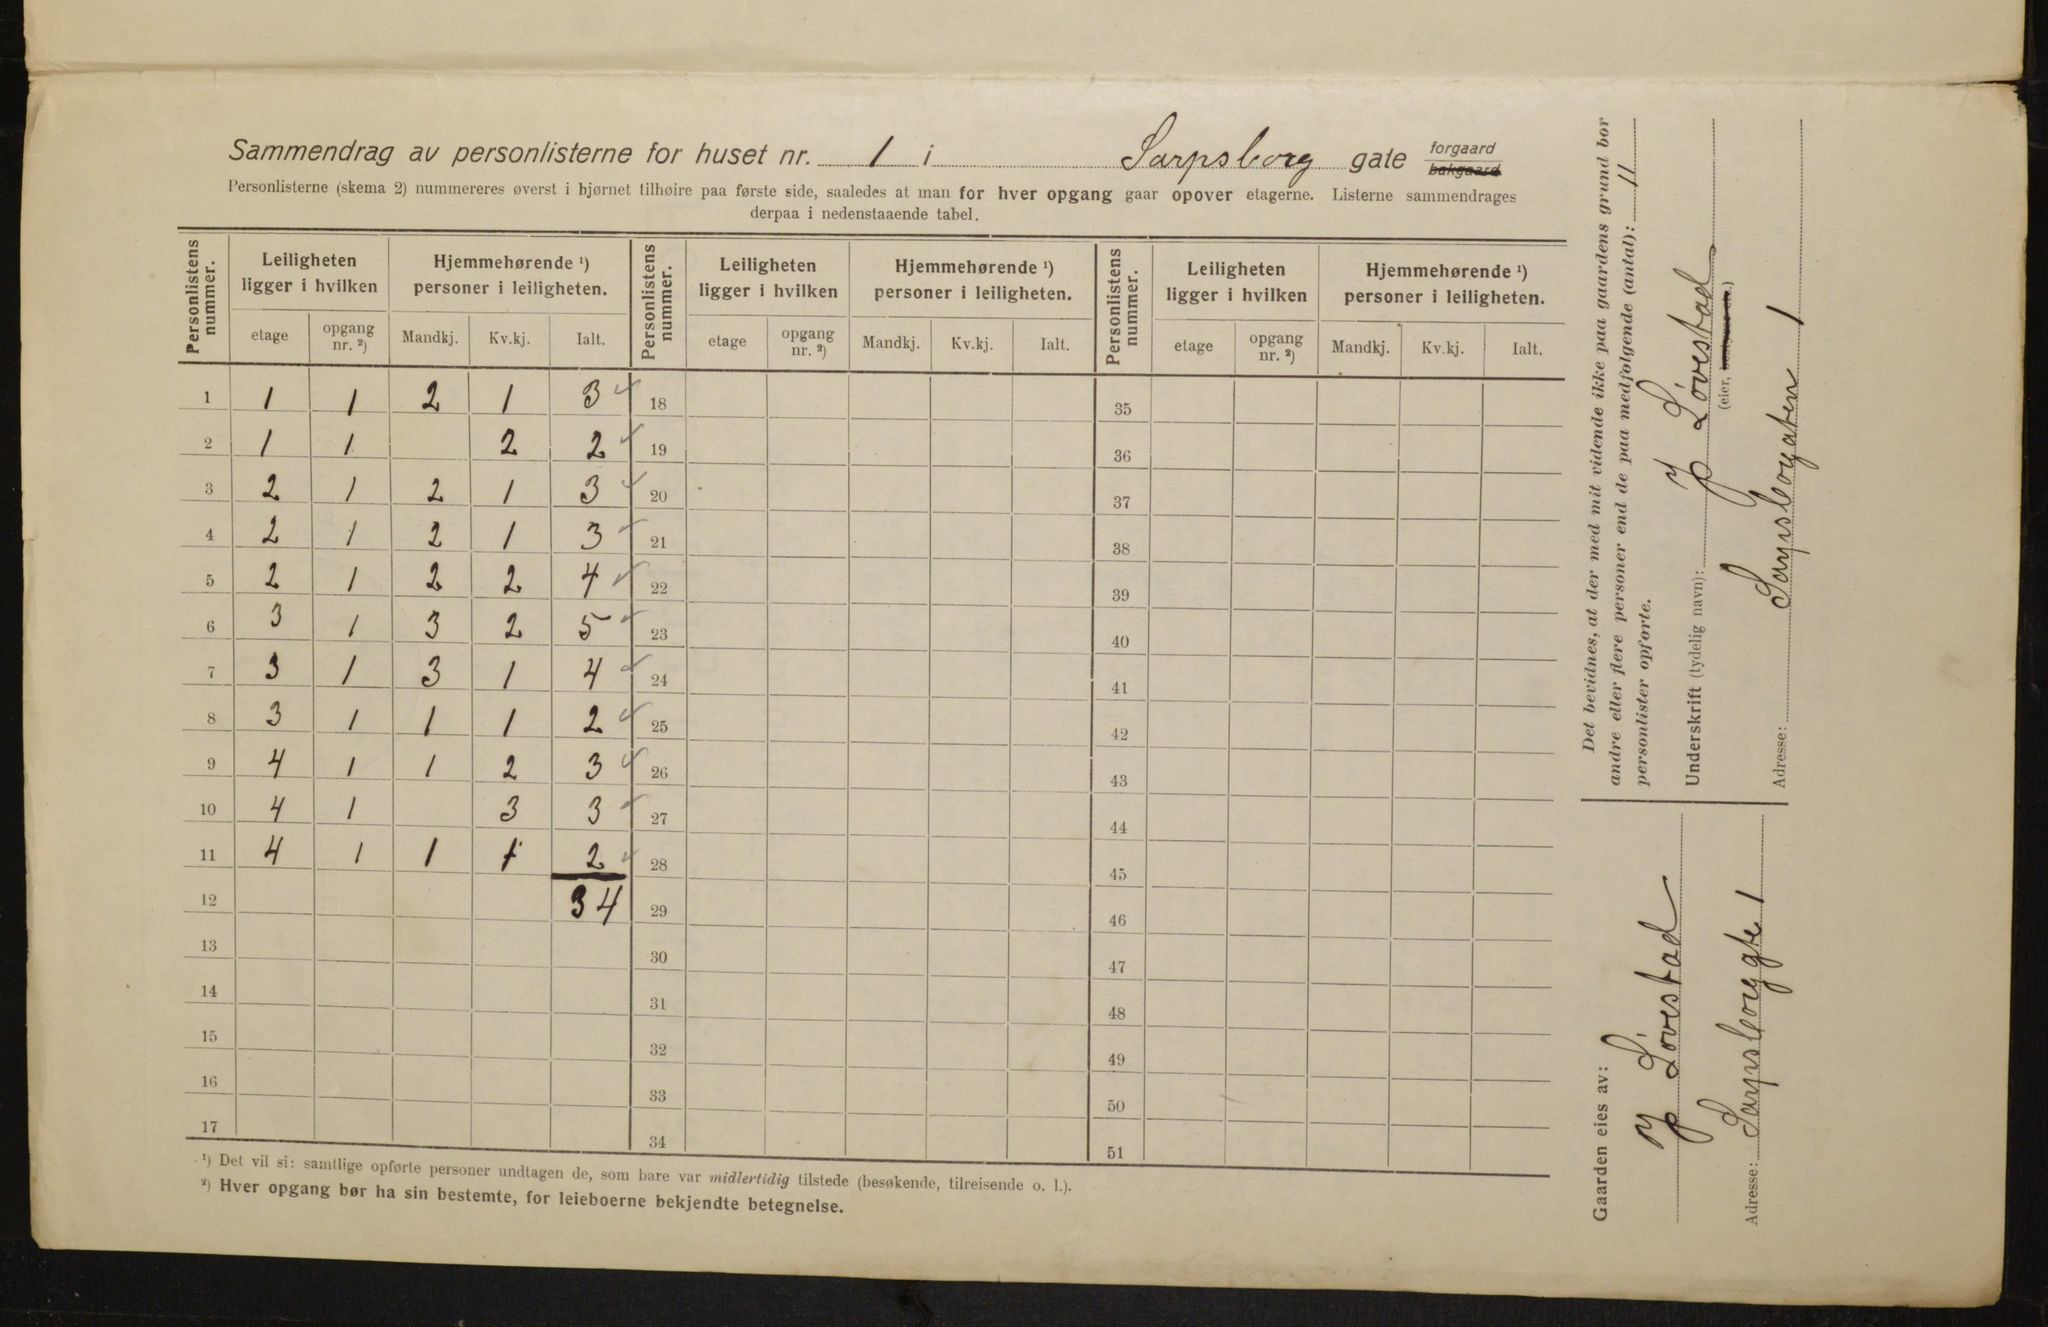 Sammendrag av personlisterne for huset nr. 1 i Sarpsborg gate forgaard bakgaard
Personlisterne (skema 2) nummereres øverst i hjørnet tilhøire paa første side, saaledes at man for hver opgang gaar opover etagerne. Listerne sammendrages
derpaa i nedenstaaende tabel.
Personlistens nummer. Leiligheten ligger i hvilken Hjemmehørende ¹) personer i leiligheten. Personlistens nummer. Leiligheten ligger i hvilken Hjemmehørende ¹) personer i leiligheten. Personlistens nummer. Leiligheten ligger i hvilken Hjemmehørende ¹) personer i leiligheten.
etage opgang nr. ²) Mandkj. Kv.kj. Ialt. etage opgang nr. ²) Mandkj. Kv.kj. Ialt. etage opgang nr. ²) Mandkj. Kv.kj. Ialt.
1 1 1 2 1 3 ✓ 18 35
2 1 1 2 2 ✓ 19 36
3 2 1 2 1 3 ✓ 20 37
4 2 1 2 1 3 ✓ 21 38
5 2 1 2 2 4 ✓ 22 39
6 3 1 3 2 5 ✓ 23 40
7 3 1 3 1 4 ✓ 24 41
8 3 1 1 1 2 ✓ 25 42
9 4 1 1 2 3 ✓ 26 43
10 4 1 3 3 ✓ 27 44
11 4 1 1 1 2 ✓ 28 45
12 34 29 46
13 30 47
14 31 48
15 32 49
16 33 50
17 34 51
¹) Det vil si: samtlige opførte personer undtagen de, som bare var midlertidig tilstede (besøkende, tilreisende o. l.).
²) Hver opgang bør ha sin bestemte, for leieboerne bekjendte betegnelse.
Det bevidnes, at der med mit vidende ikke paa gaardens grund bor
andre eller flere personer end de paa medfølgende (antal): 11
personlister opførte.
Underskrift (tydelig navn): J Løvestad
(eier, bestyrer etc.)
Adresse: Sarpsborgaten 1
Gaarden eies av:
J Løvestad
Adresse: Sarpsborggte 1